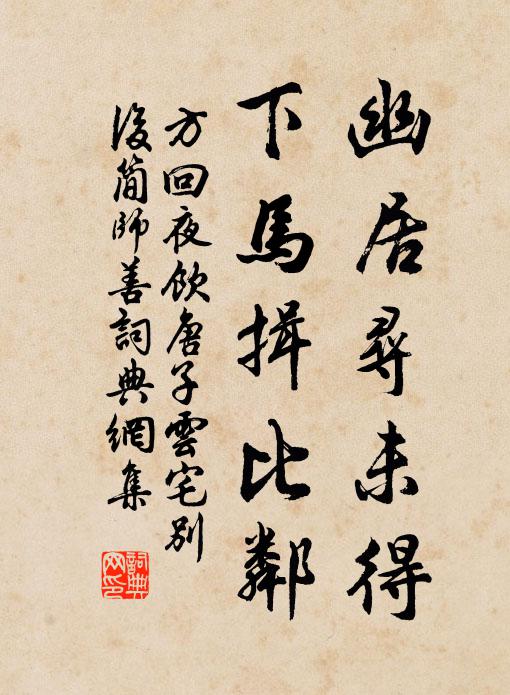 幽居尋未得
下馬揖比鄰
方回夜飲唐子雲宅別
後簡師善詞典網集
詞典
网印